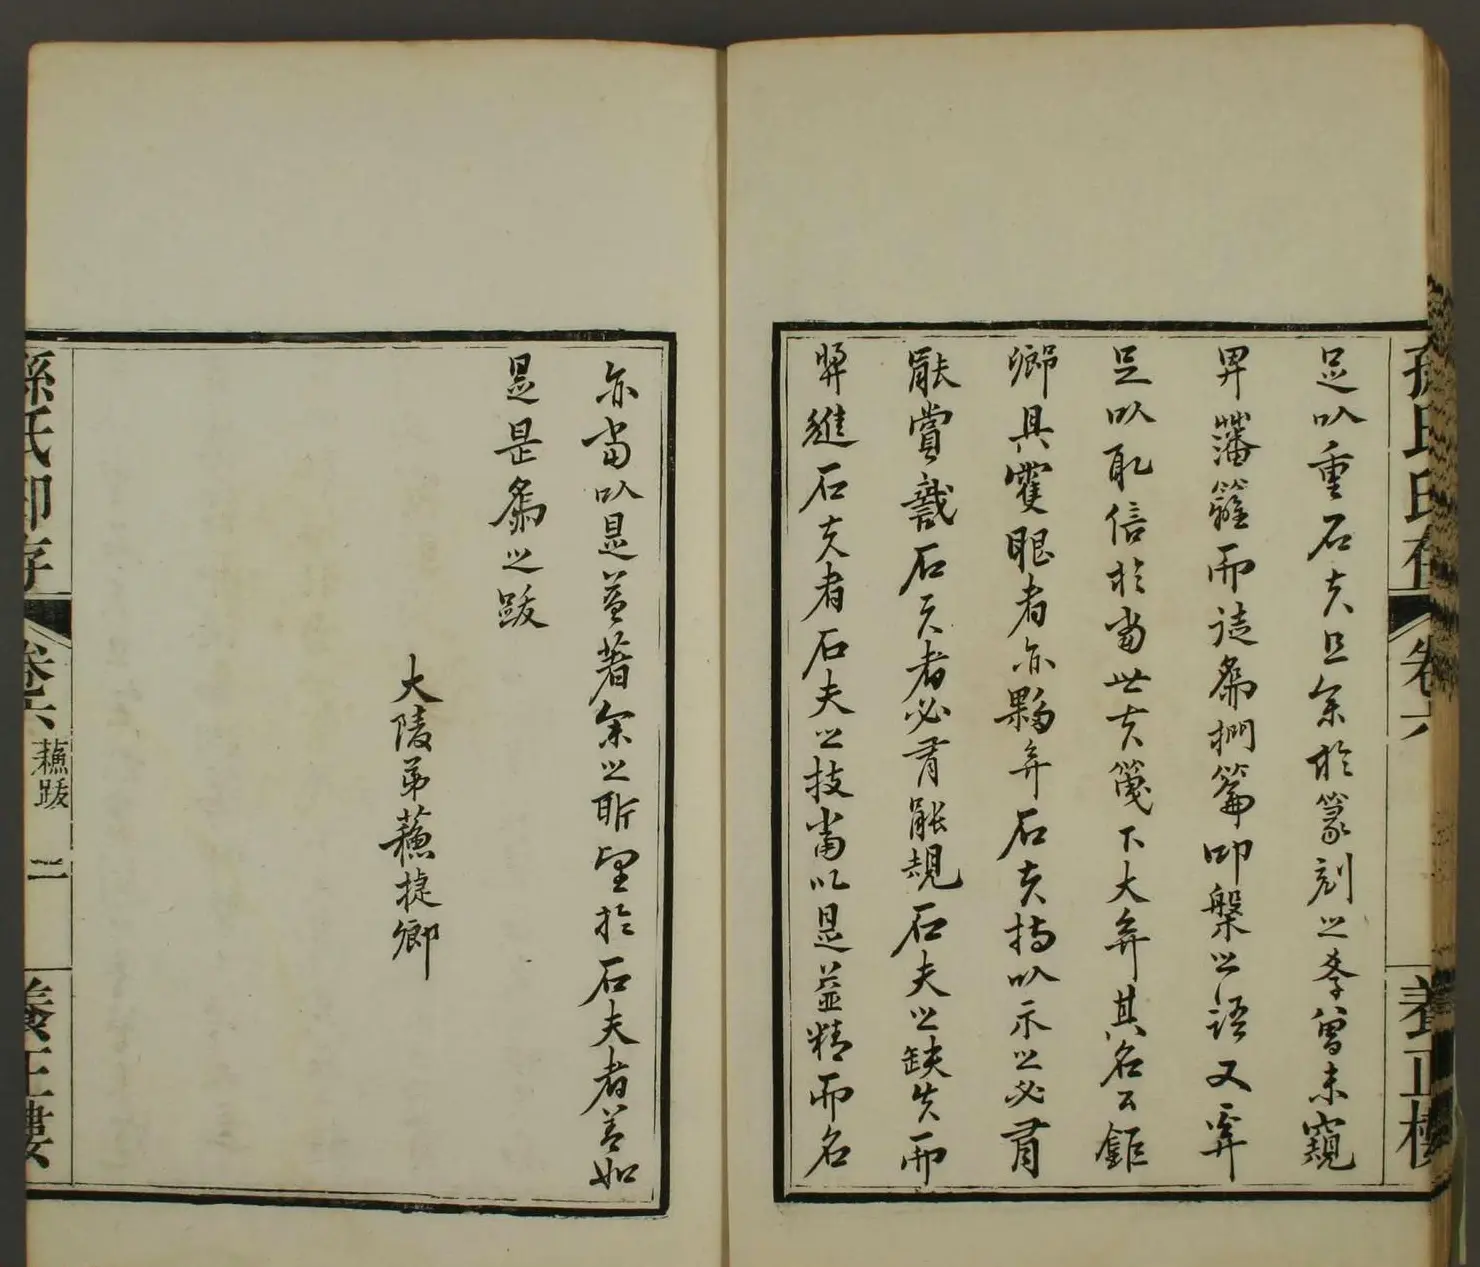 孫氏印存 卷六 養正樓
足以重石夫且余於篆刻之學曾未窺
畀藩籬而徒為捫籥叩槃之語又
足以取信於當世夫箋下大弃其名公鉅
卿具隻眼者亦夥弃石夫持以示之必有
能賞識石夫者必有能規石夫之缺失而
將進石夫者石夫之技當以是益精而名
亦當以是益著余之所望於石夫者蓋如
是是為之跋
大陵弟蘇捷卿
孫氏印存 卷六 蘇跋 二 養正樓